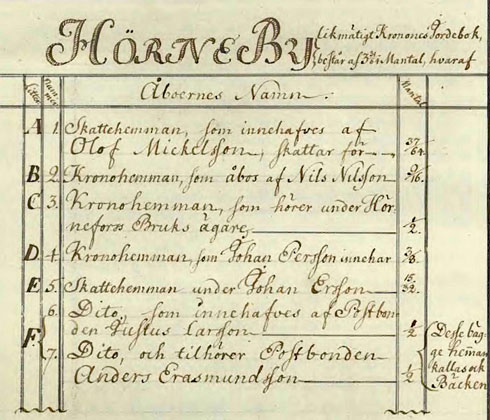 HÖRNE BY, likmätigt Kronones Jordebok,
består af Mantal, hvaraf
Litter. Num̄er. Åboernes Namn. Mantal
A 1. Skattehemman, som innehafves af
Olof Mickelsson, skattar för 37/64.
B 2. Kronohemman, som åbos af Nils Nilsson /16.
C 3. Kronohemman, som hörer under Hör-
nefors Bruks ägare, 1/2.
D. 4. Kronohemman, som Johan Persson innehar 3/8.
E 5. Skattehemman under Johan Ersson 15/32.
6. Dito, som innehafves af Postbon-
F. den Justus Larsson 1/2
7. Dito, och tilhörer Postbonden
Anders Erasmundsson 1/2
Desse bäg-
ge heman
kallas ock
Bäcken